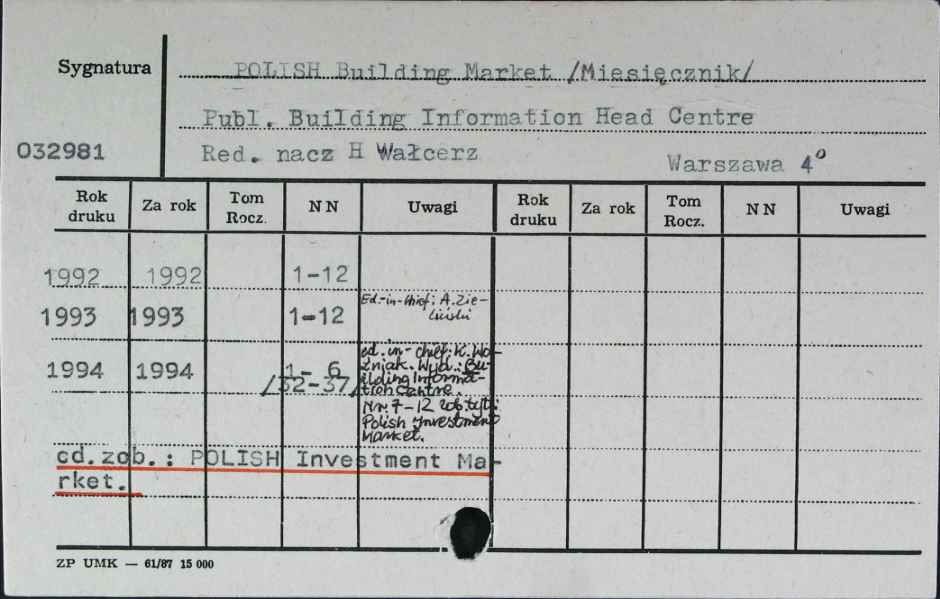 Sygnatura
POLISH Building Market /Miesięcznik/
Publ. Building Information Head Centre
032981
Red. nacz H Wałcerz
Warszawa 4°
Rok druku Za rok Tom Rocz. NN Uwagi Rok druku Za rok Tom Rocz. NN Uwagi
1992 1992 1-12
Ed.-in-chief: A.Zie-
liński
1993 1993 1-12
ed. in- chief: K. Wo-
źniak. Wyd.: Bu-
1994 1994 1- 6
ilding Informa-
/32-37/
tion Centre.
Nr. 7-12 zob. tyt.:
Polish Investment
Market.
cd.zob.: POLISH Investment Ma-
rket.
ZP UMK — 61/87 15 000